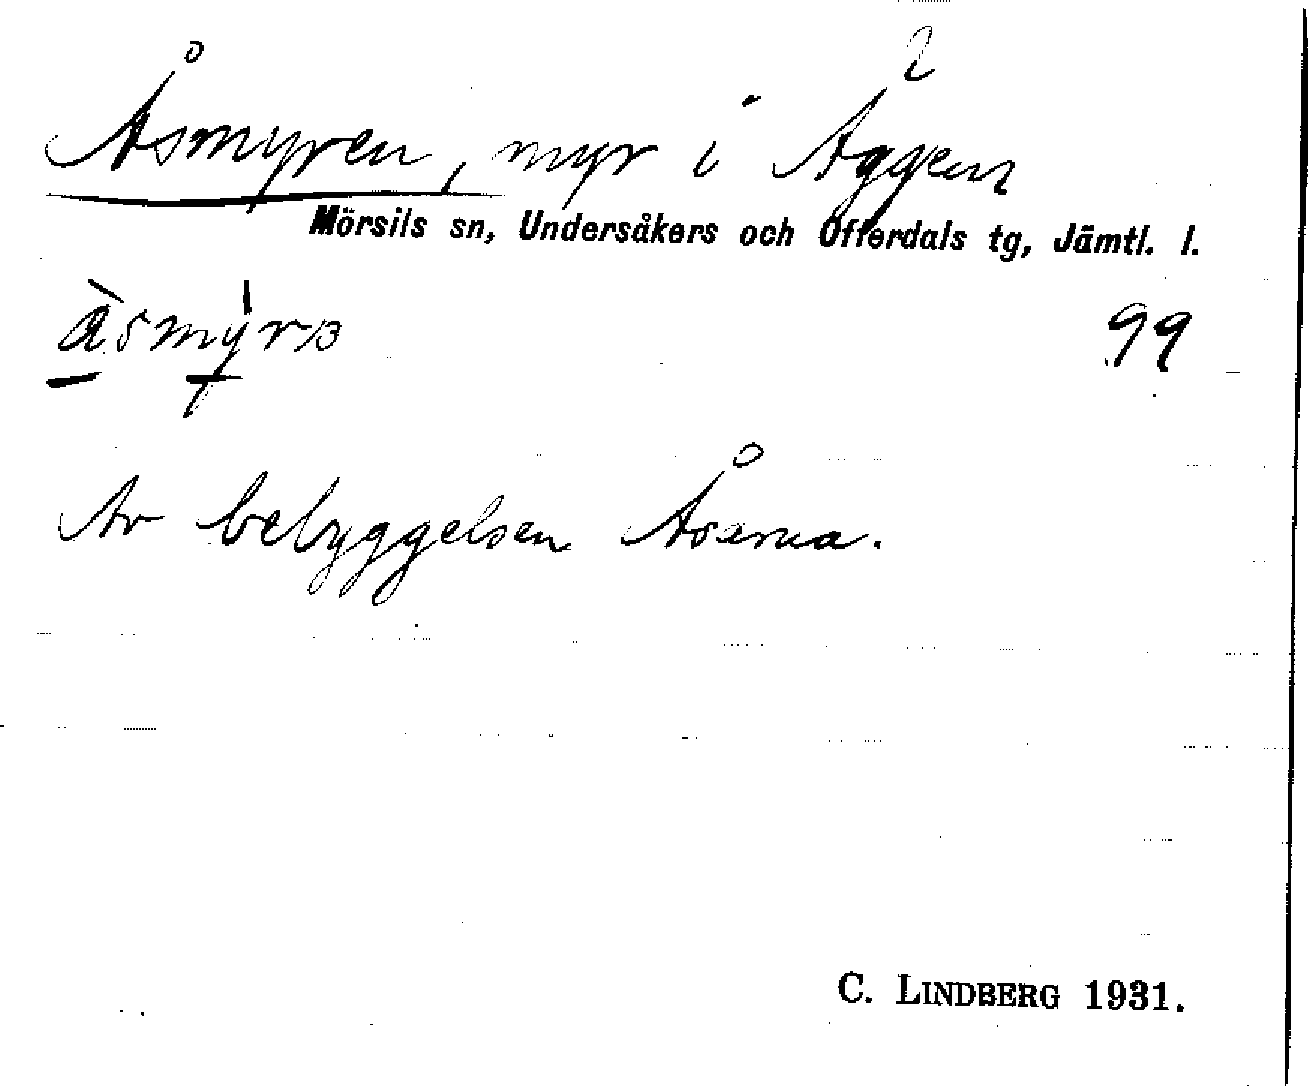 Åsmyren, myr i Åggen
Mörsils sn, Undersåkers och Offerdals tg, Jämtl. l.
99
Av bebyggelsen Åserna.
C. LINDBERG 1931.